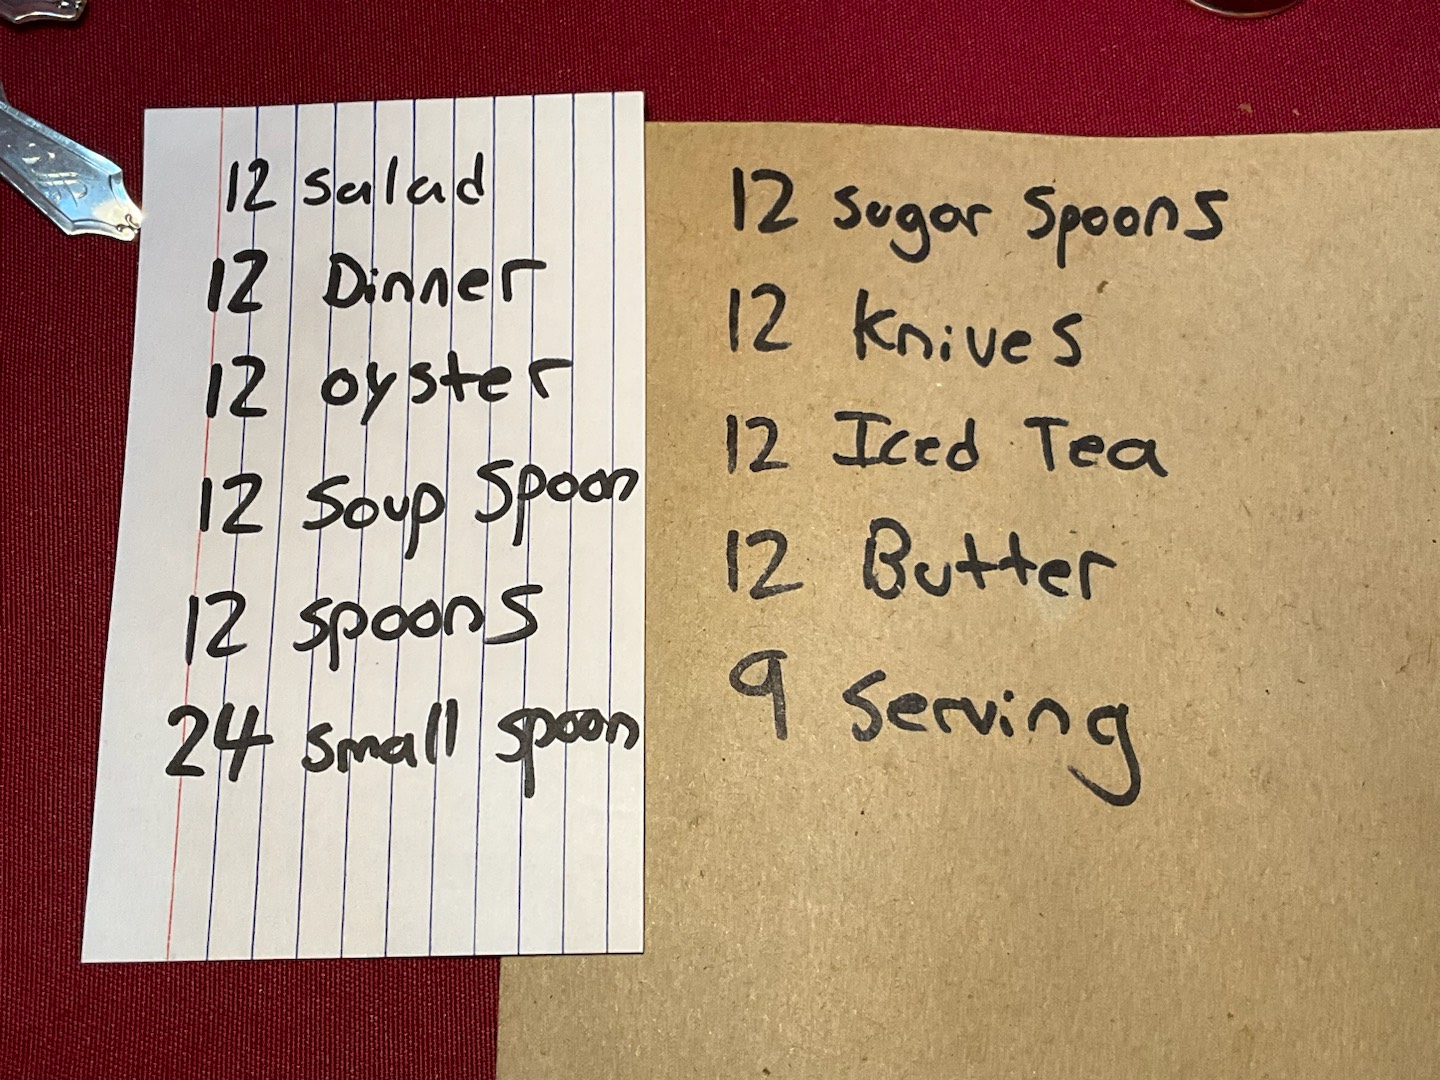 12 salad
12 Dinner
12 oyster
12 Soup Spoon
12 spoons
24 small spoon
12 sugar spoons
12 Knives
12 Iced Tea
12 Butter
9 Serving